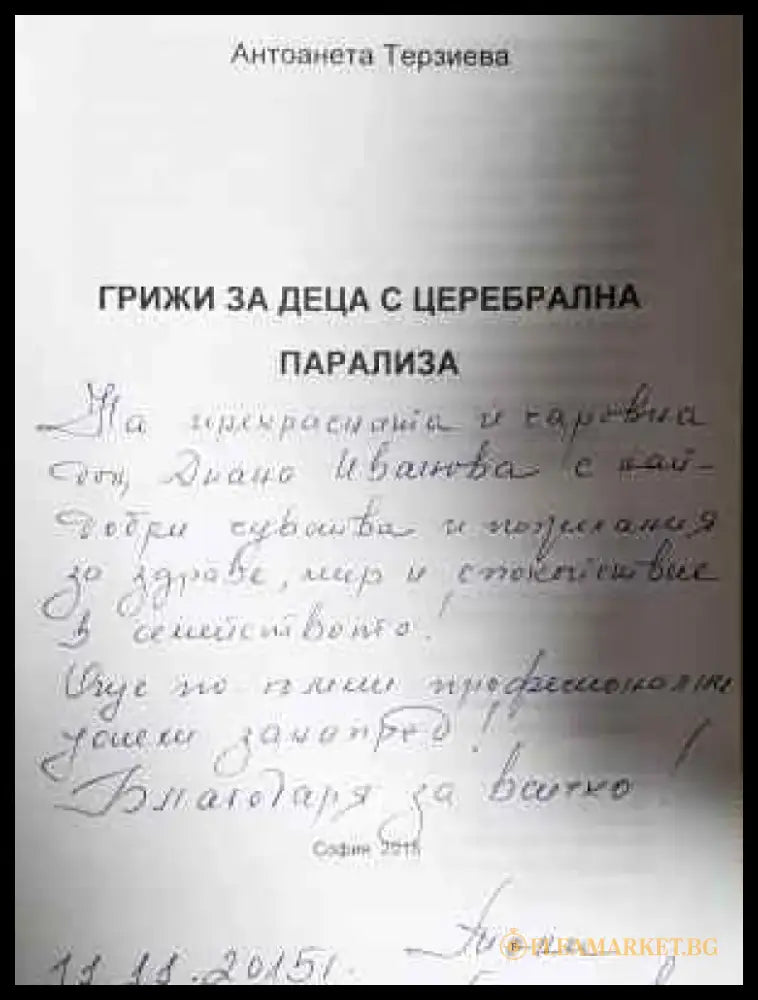 Антоанета Терзиева
ГРИЖИ ЗА ДЕЦА С ЦЕРЕБРАЛНА
ПАРАЛИЗА
На прекрасната и чаровна
Диана Иванова с най-
добри чувства и пожелания
за здраве, мир и спокойствие
в семейството!
Още по големи професионални
успехи занапред!
Благодаря за всичко!
София 2015
FLEAMARKET.BG
11.11.2015г.